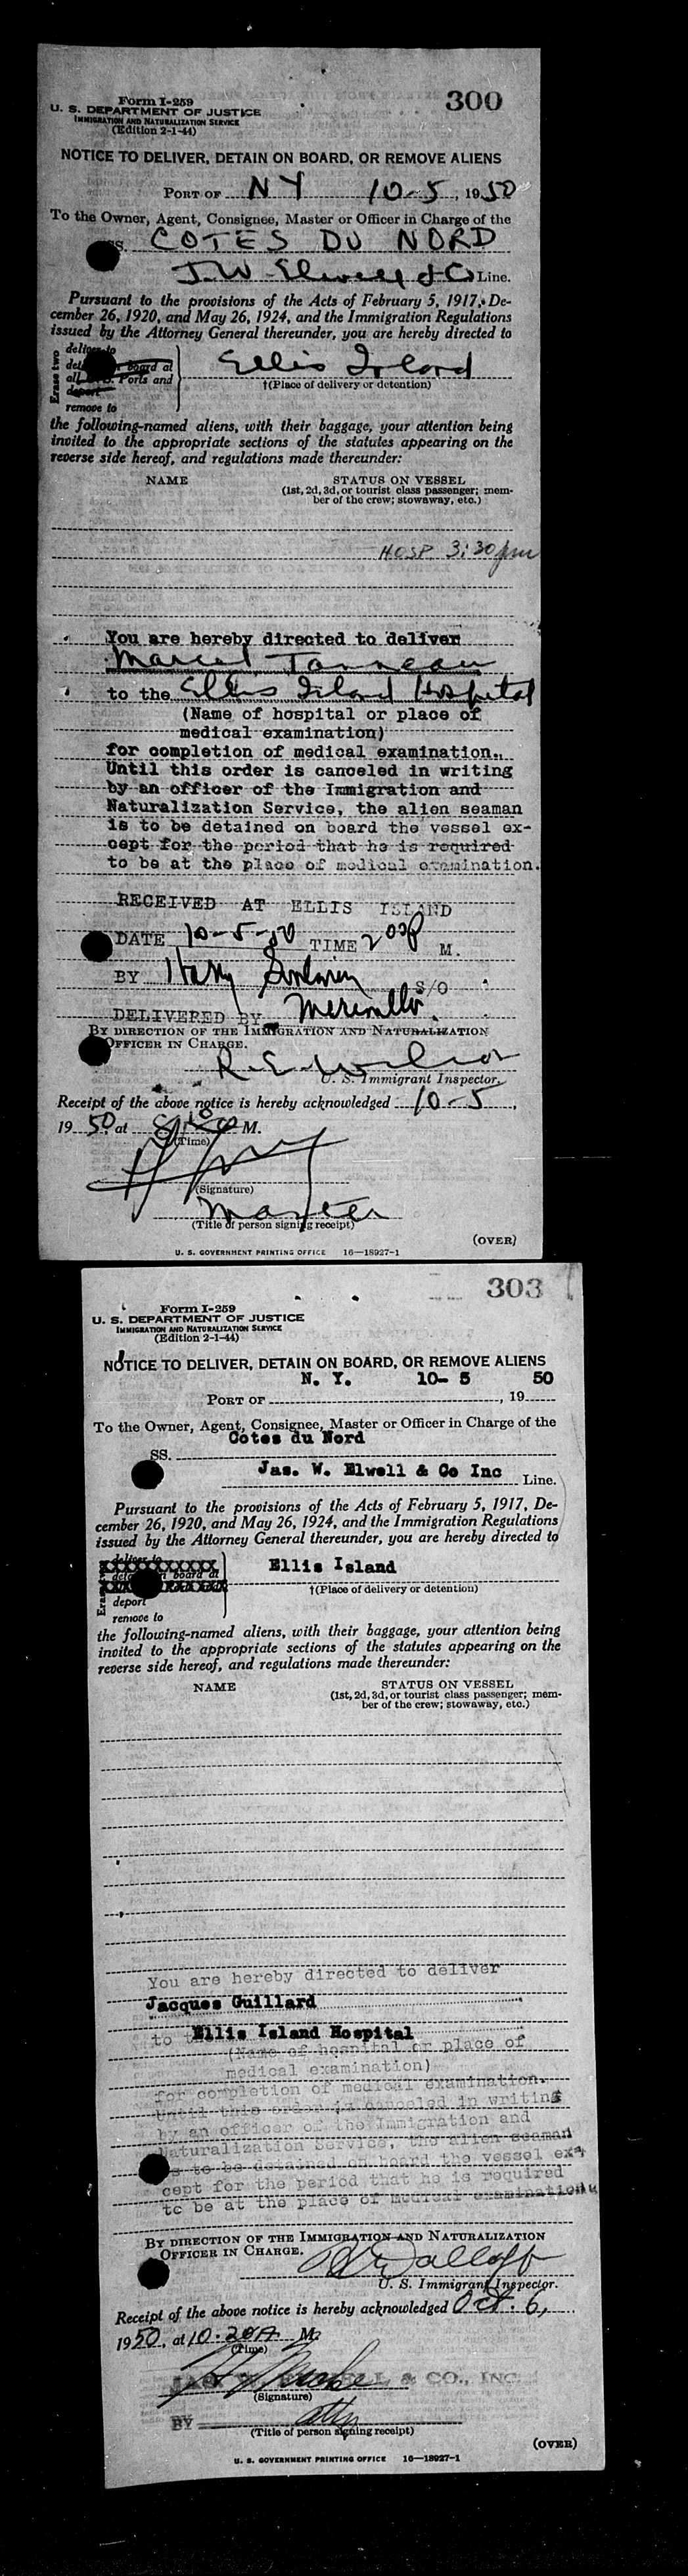 300
Form I-259
U. S. DEPARTMENT OF JUSTICE
IMMIGRATION AND NATURALIZATION SERVICE
(Edition 2-1-44)
NOTICE TO DELIVER, DETAIN ON BOARD, OR REMOVE ALIENS
PORT OF NY 10-5, 1950
To the Owner, Agent, Consignee, Master or Officer in Charge of the
SS. COTES DU NORD
J. W. Elwell & Co Line.
Pursuant to the provisions of the Acts of February 5, 1917, De-
cember 26, 1920, and May 26, 1924, and the Immigration Regulations
issued by the Attorney General thereunder, you are hereby directed to
Erase two
deliver to
board at
Ports and
deport
remove to
Ellis Island
†(Place of delivery or detention)
the following-named aliens, with their baggage, your attention being
invited to the appropriate sections of the statutes appearing on the
reverse side hereof, and regulations made thereunder:
NAME STATUS ON VESSEL
(1st, 2d, 3d, or tourist class passenger; mem-
ber of the crew; stowaway, etc.)
HOSP. 3:30 pm
You are hereby directed to deliver
Marcel Tanneau
to the Ellis Island Hospital
(Name of hospital or place of
medical examination)
for completion of medical examination.
Until this order is canceled in writing
by an officer of the Immigration and
Naturalization Service, the alien seaman
is to be detained on board the vessel ex-
cept for the period that he is required
to be at the place of medical examination.
RECEIVED AT ELLIS ISLAND
DATE 10-5-50 TIME M.
BY Harry S/O
DELIVERED BY
BY DIRECTION OF THE IMMIGRATION AND NATURALIZATION
OFFICER IN CHARGE.
R. E. Wilson
U. S. Immigrant Inspector.
Receipt of the above notice is hereby acknowledged 10-5,
1950, at M.
(Time)
(Signature)
Master
(Title of person signing receipt)
(OVER)
U. S. GOVERNMENT PRINTING OFFICE 16—18927-1
303
Form I-259
U. S. DEPARTMENT OF JUSTICE
IMMIGRATION AND NATURALIZATION SERVICE
(Edition 2-1-44)
NOTICE TO DELIVER, DETAIN ON BOARD, OR REMOVE ALIENS
N. Y. 10- 5 50
PORT OF , 19
To the Owner, Agent, Consignee, Master or Officer in Charge of the
Cotes du Nord
SS.
Jas. W. Elwell & Co Inc
Line.
Pursuant to the provisions of the Acts of February 5, 1917, De-
cember 26, 1920, and May 26, 1924, and the Immigration Regulations
issued by the Attorney General thereunder, you are hereby directed to
deliver to
board at
deport
remove to
Ellis Island
†(Place of delivery or detention)
the following-named aliens, with their baggage, your attention being
invited to the appropriate sections of the statutes appearing on the
reverse side hereof, and regulations made thereunder:
NAME STATUS ON VESSEL
(1st, 2d, 3d, or tourist class passenger; mem-
ber of the crew; stowaway, etc.)
You are hereby directed to deliver
Jacques Guillard
to Ellis Island Hospital
(Name of hospital or place of
medical examination)
for completion of medical examination.
Until this order is canceled in writing
by an officer of the Immigration and
Naturalization Service, the alien seaman
is to be detained on board the vessel ex-
cept for the period that he is required
to be at the place of medical examination
BY DIRECTION OF THE IMMIGRATION AND NATURALIZATION
OFFICER IN CHARGE.
U. S. Immigrant Inspector.
Receipt of the above notice is hereby acknowledged Oct. 6,
1950, at 10:20A M.
(Time)
JAS. W. ELWELL & CO., INC
(Signature)
BY atty
(Title of person signing receipt)
(OVER)
U. S. GOVERNMENT PRINTING OFFICE 16—18927-1